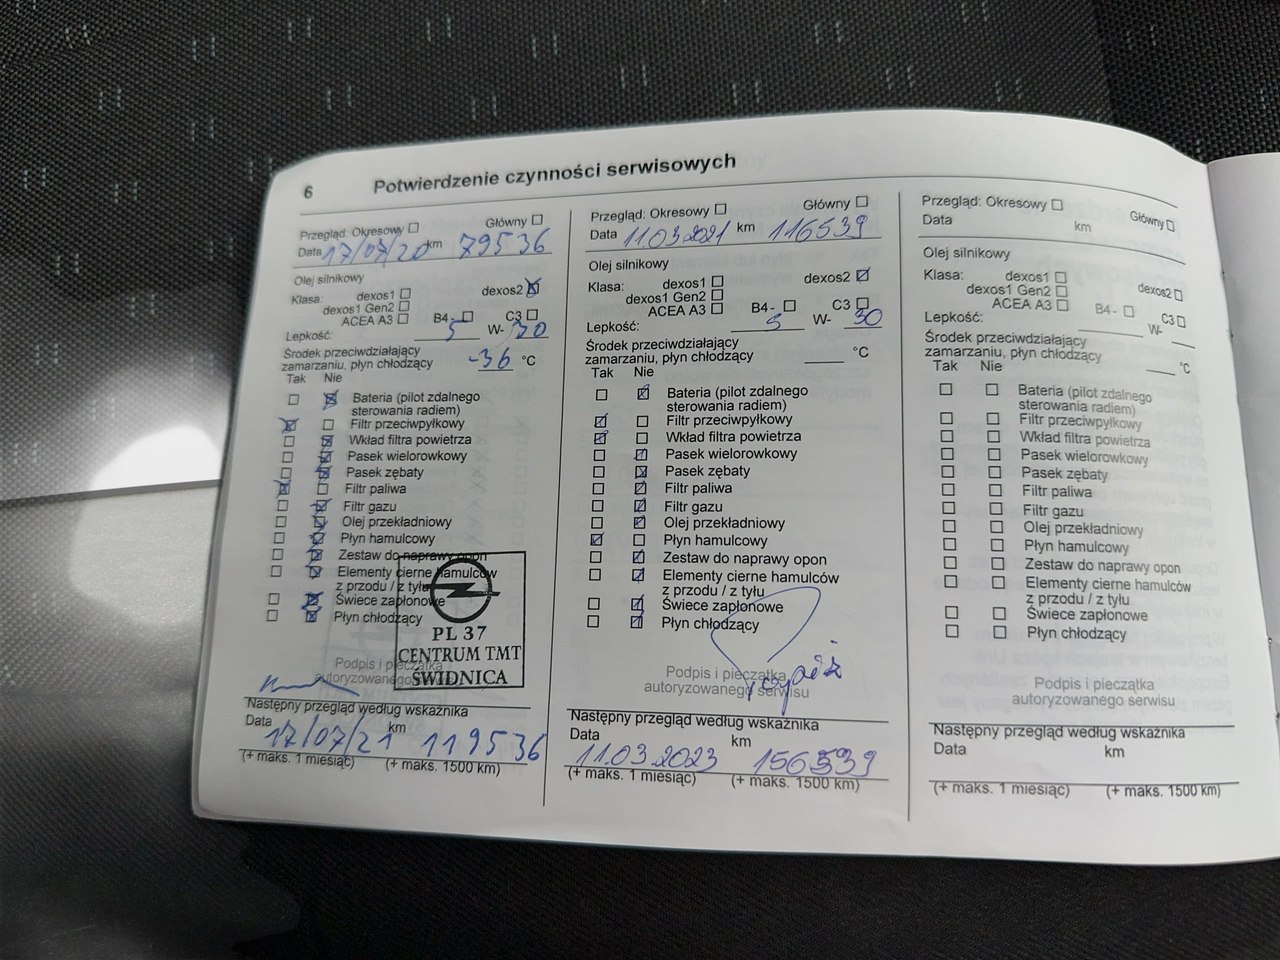 6 Potwierdzenie czynności serwisowych
Przegląd: Okresowy Główny
Data 17/07/20 km 79536
Olej silnikowy
Klasa: dexos1 dexos2
dexos1 Gen2
ACEA A3 B4 - C3
Lepkość: 5 W- 30
Środek przeciwdziałający
zamarzaniu, płyn chłodzący -36 °C
Tak Nie
Bateria (pilot zdalnego
sterowania radiem)
Filtr przeciwpyłkowy
Wkład filtra powietrza
Pasek wielorowkowy
Pasek zębaty
Filtr paliwa
Filtr gazu
Olej przekładniowy
Płyn hamulcowy
Zestaw do naprawy opon
Elementy cierne hamulców
z przodu / z tyłu
Świece zapłonowe
Płyn chłodzący
PL 37
CENTRUM TMT
ŚWIDNICA
Podpis i pieczątka
autoryzowanego serwisu
Następny przegląd według wskaźnika
Data km
17/07/21 119536
(+ maks. 1 miesiąc) (+ maks. 1500 km)
Przegląd: Okresowy Główny
Data 11.03.2021 km 116539
Olej silnikowy
Klasa: dexos1 dexos2
dexos1 Gen2
ACEA A3 B4 - C3
Lepkość: 5 W- 30
Środek przeciwdziałający
zamarzaniu, płyn chłodzący °C
Tak Nie
Bateria (pilot zdalnego
sterowania radiem)
Filtr przeciwpyłkowy
Wkład filtra powietrza
Pasek wielorowkowy
Pasek zębaty
Filtr paliwa
Filtr gazu
Olej przekładniowy
Płyn hamulcowy
Zestaw do naprawy opon
Elementy cierne hamulców
z przodu / z tyłu
Świece zapłonowe
Płyn chłodzący
Podpis i pieczątka
autoryzowanego serwisu
Następny przegląd według wskaźnika
Data km
11.03.2023 156539
(+ maks. 1 miesiąc) (+ maks. 1500 km)
Przegląd: Okresowy Główny
Data km
Olej silnikowy
Klasa: dexos1 dexos2
dexos1 Gen2
ACEA A3 B4 - C3
Lepkość: W-
Środek przeciwdziałający
zamarzaniu, płyn chłodzący °C
Tak Nie
Bateria (pilot zdalnego
sterowania radiem)
Filtr przeciwpyłkowy
Wkład filtra powietrza
Pasek wielorowkowy
Pasek zębaty
Filtr paliwa
Filtr gazu
Olej przekładniowy
Płyn hamulcowy
Zestaw do naprawy opon
Elementy cierne hamulców
z przodu / z tyłu
Świece zapłonowe
Płyn chłodzący
Podpis i pieczątka
autoryzowanego serwisu
Następny przegląd według wskaźnika
Data km
(+ maks. 1 miesiąc) (+ maks. 1500 km)